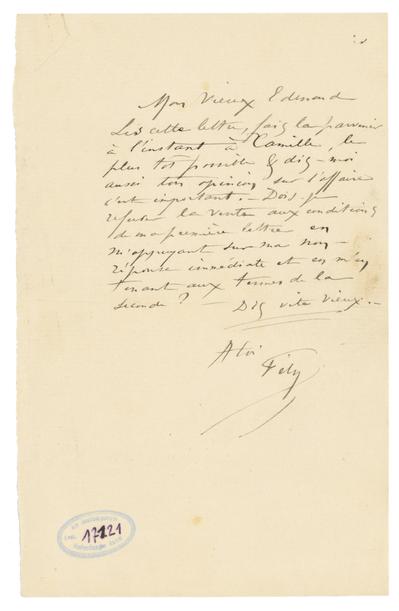 Mon Vieux Edmond
Lis cette lettre, fais la parvenir
à l'instant à Camille, le
plus tôt possible & dis-moi
aussi ton opinion sur l'affaire
c'est important. - Dois-je
refuser la vente aux conditions
de ma première lettre en
m'appuyant sur ma non-
réponse immédiate et en m'en
tenant aux termes de la
seconde ? - Dis vite vieux. -
A toi
17221